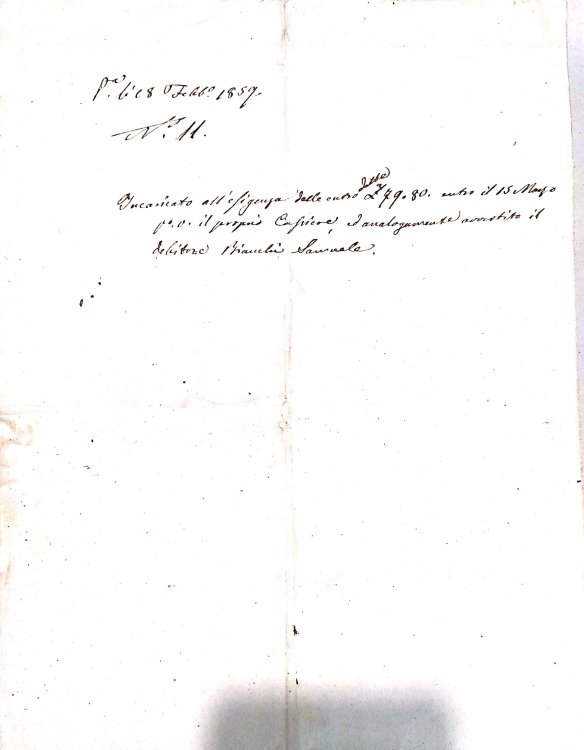 P.ta li 18 Febb.o 1859.
N.o 11.
Incaricato all'esigenza delle entro dette £ 79.80. entro il 15 Marzo
p.o. il proprio Cassiere, ed analogamente avvertito il
debitore Bianchi Samuele.